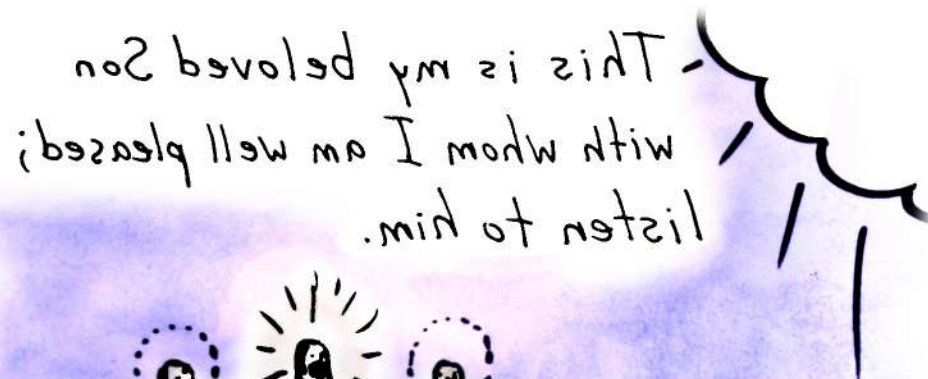 This is my beloved Son
with whom I am well pleased;
listen to him.